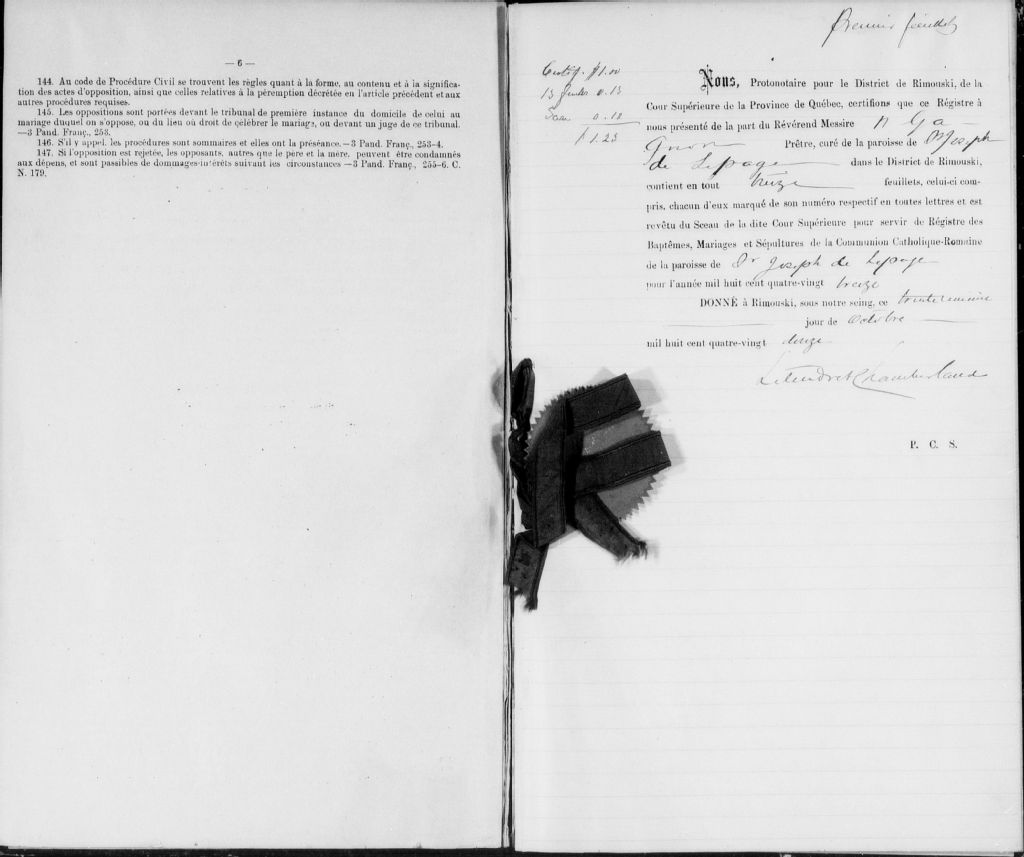 — 6 —
144. Au code de Procédure Civil se trouvent les règles quant à la forme, au contenu et à la significa-
tion des actes d'opposition, ainsi que celles relatives à la péremption décrétée en l'article précédent et aux
autres procédures requises.
145. Les oppositions sont portées devant le tribunal de première instance du domicile de celui au
mariage duquel on s'oppose, ou du lieu où droit de célébrer le mariage, ou devant un juge de ce tribunal.
—3 Pand. Franç., 253.
146. S'il y appel, les procédures sont sommaires et elles ont la préséance.—3 Pand. Franç., 253-4.
147. Si l'opposition est rejetée, les opposants, autres que le père et la mère, peuvent être condamnés
aux dépens, et sont passibles de dommages-intérêts suivant les circonstances—3 Pand. Franç., 255-6. C.
N. 179.
Premier feuillet
Certif. $1.00
13 feules 0.13
0.12
$1.25
Nous, Protonotaire pour le District de Rimouski, de la
Cour Supérieure de la Province de Québec, certifions que ce Régistre à
nous présenté de la part du Révérend Messire N Ga
gnon Prêtre, curé de la paroisse de St Joseph
de Lepage dans le District de Rimouski,
contient en tout treize feuillets, celui-ci com-
pris, chacun d'eux marqué de son numéro respectif en toutes lettres et est
revêtu du Sceau de la dite Cour Supérieure pour servir de Régistre des
Baptêmes, Mariages et Sépultures de la Communion Catholique-Romaine
de la paroisse de St Joseph de Lepage
pour l'année mil huit cent quatre-vingt treize
DONNÉ à Rimouski, sous notre seing, ce trente unième
jour de Octobre
mil huit cent quatre-vingt douze
Letendre & Chamberland
P. C. S.